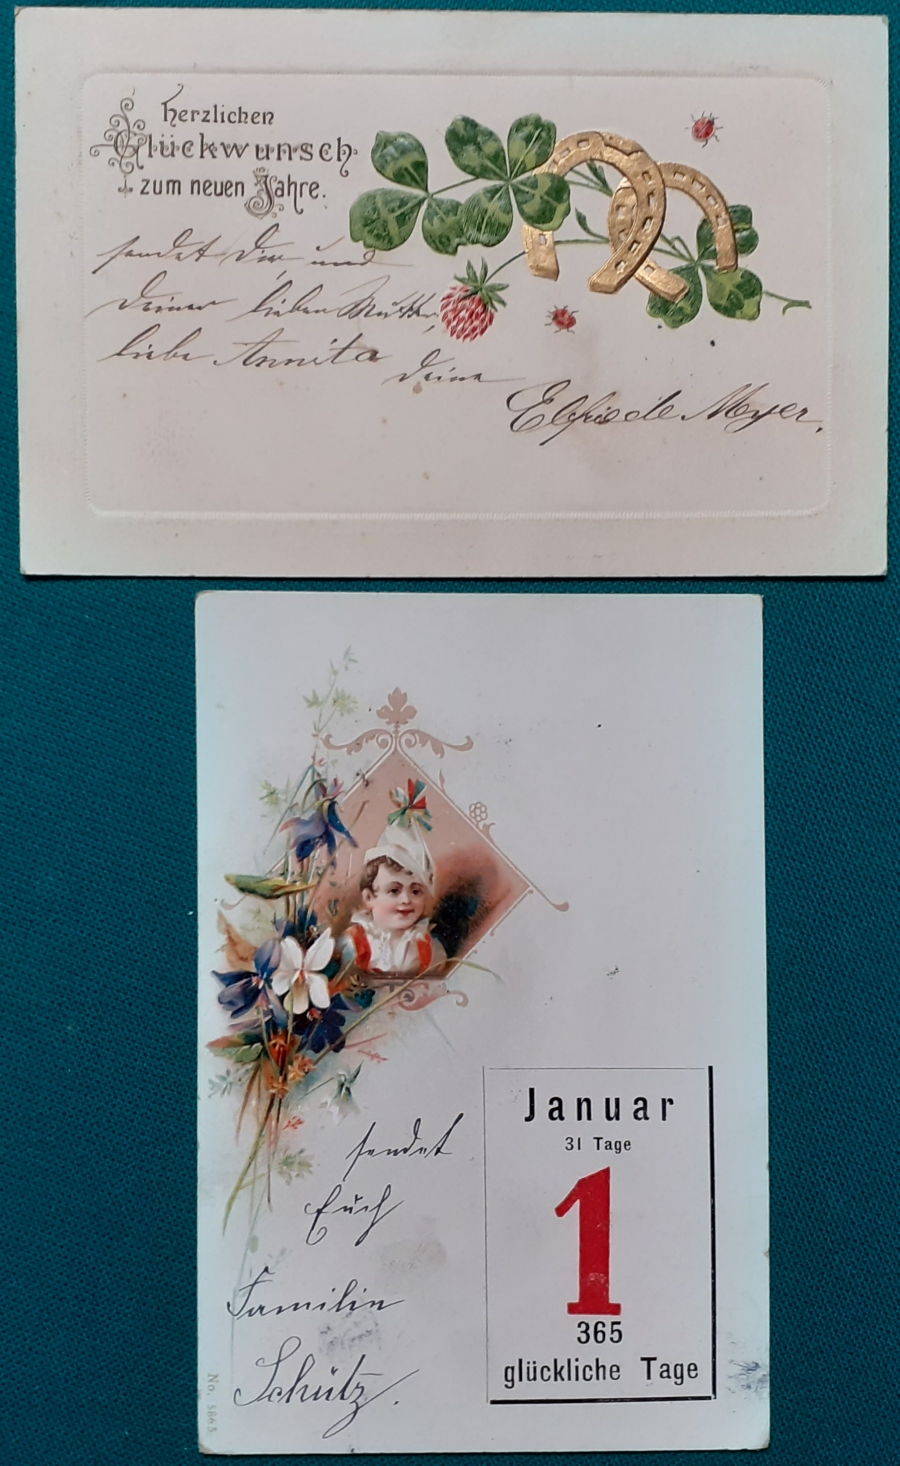 Herzlichen
Glückwunsch
zum neuen Jahre.
sendet Dir und
Deiner lieben Mutter,
liebe Annita
Deine
Elfriede Meyer.
Januar
31 Tage
1
365
glückliche Tage
sendet
Euch
Familie
Schütz.
No. 5865